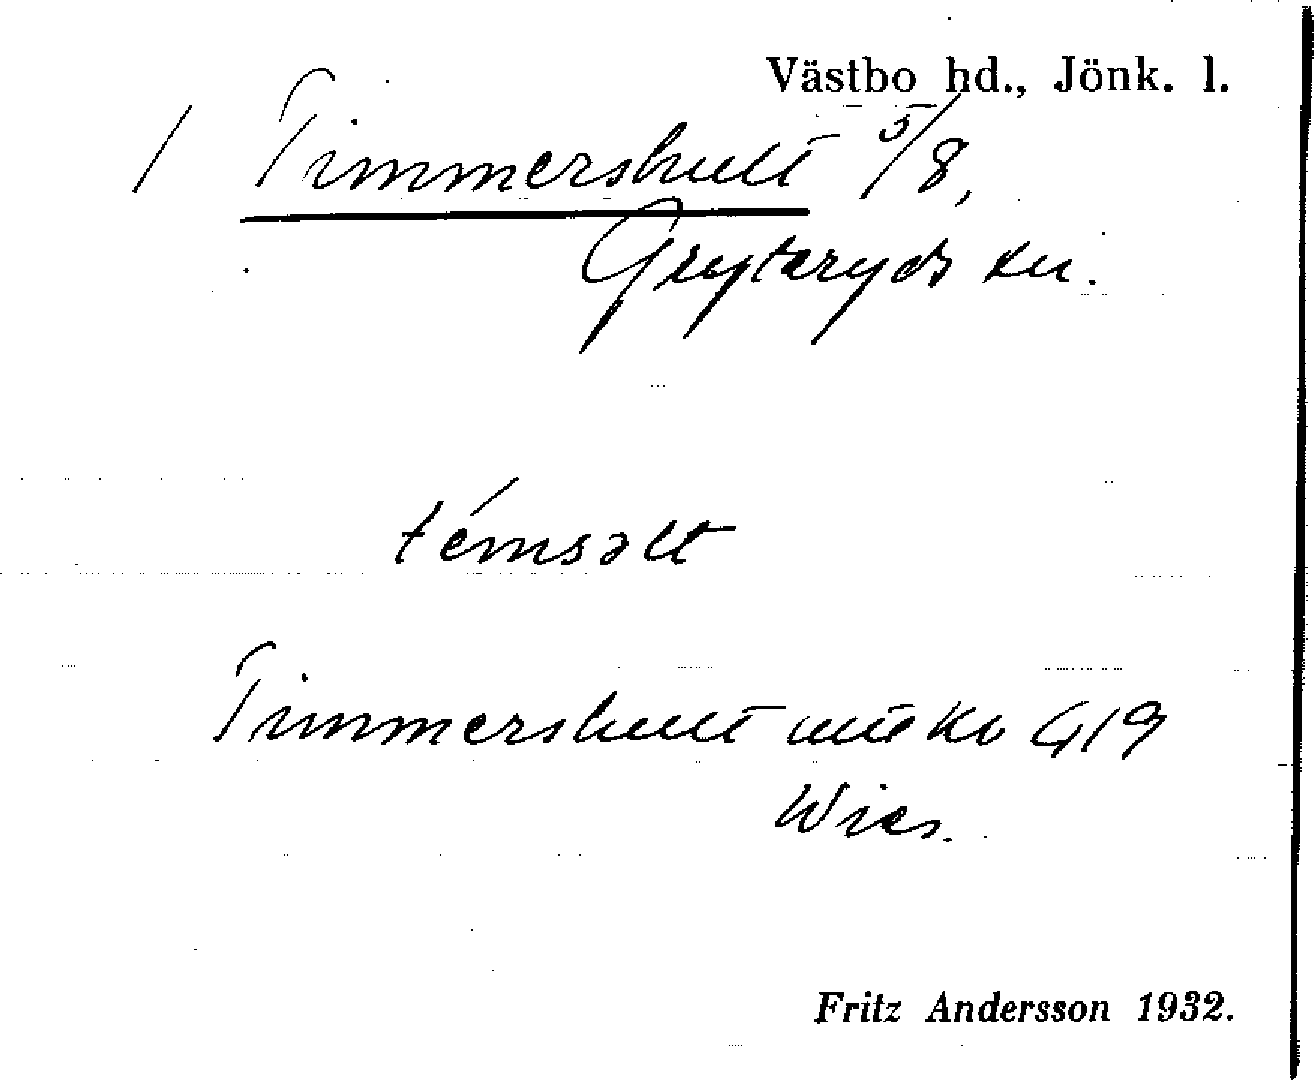 Västbo hd., Jönk. l.
1 Timmershult 5/8,
Gryteryds sn.
témsəlt
Timmershult 419
Wies.
Fritz Andersson 1932.